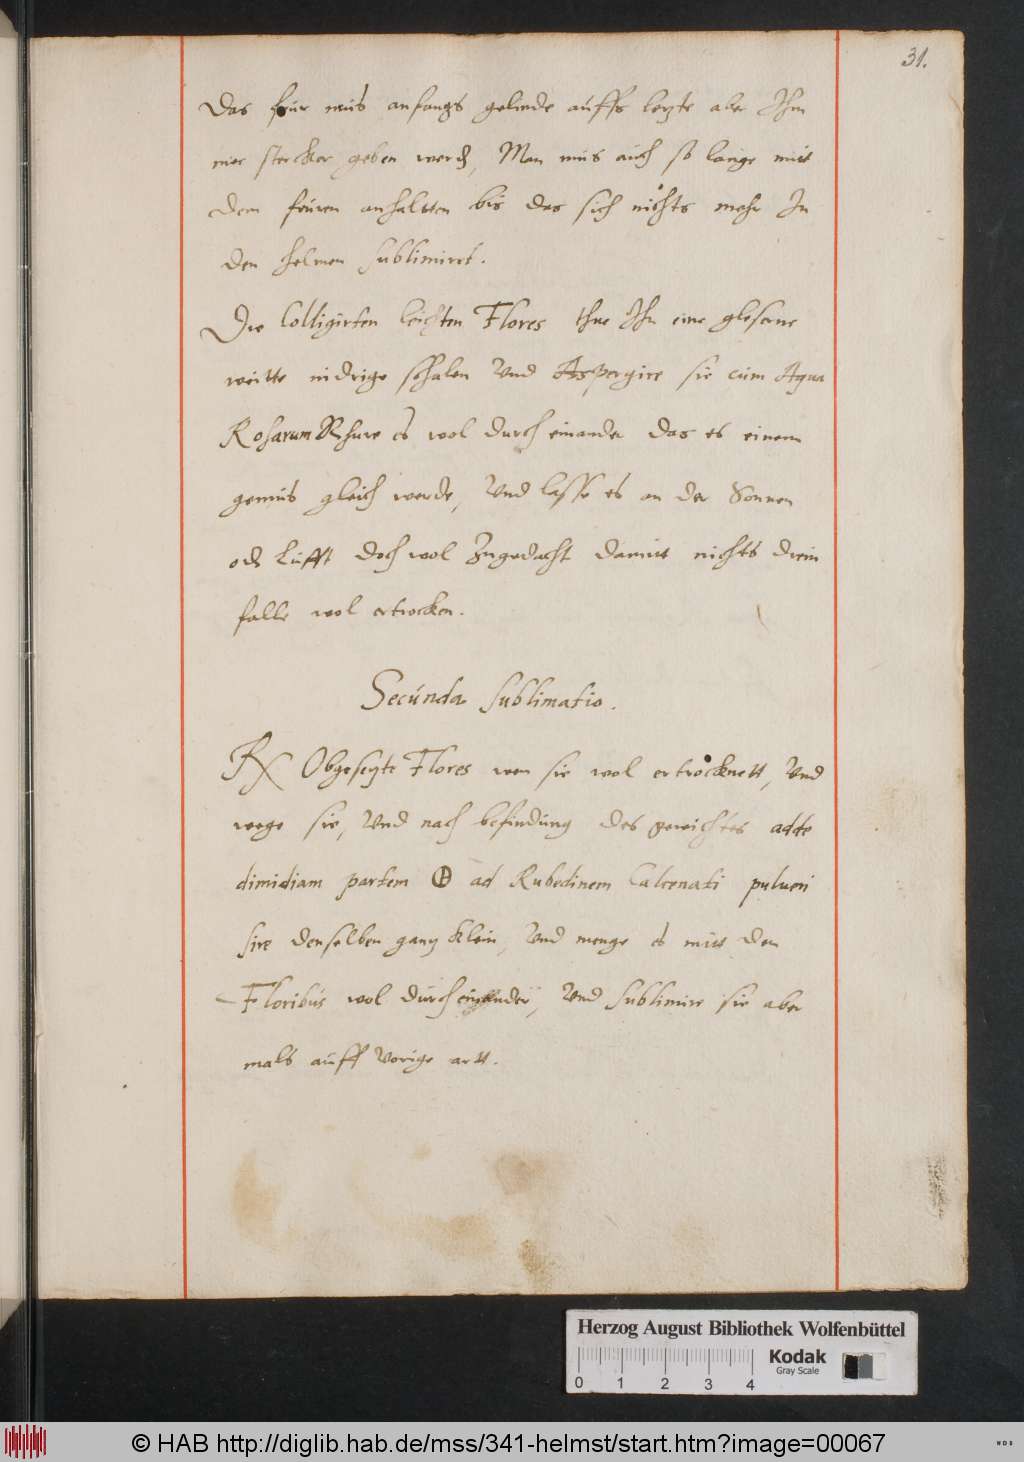 31.
Das feur mus anfangs gelinde auffs letzte aber Ihm
mer stercker geben werden, Man mus auch so lange mitt
dem feuren anhaltten bis das sich nichts mehr In
den helmen sublimiret.
Die Colligirten leichten Flores thue Ihn eine glesene
weitte nidrige schalen Und Aspergire sie cum Aqua
Rosarum Rhure es wol durch einander das es einem
gemus gleich werde, Und lasse es an der Sonnen
oder Lufft doch wol Zugedacht damitt nichts drein
falle wol ertrocken.
Secunda Sublimatio.
℞ Obgesetzte Flores wen sie wol ertrocknett, Und
wege sie, Und nach befindung des gewichtes adde
dimidiam partem ad Rubedinem Calcenati pulueri
sire denselben gantz klein, Und menge es mitt den
Floribus wol durch einander, Und Sublimire sie aber
mals auff vorige artt.
Herzog August Bibliothek Wolfenbüttel
0 1 2 3 4
Kodak
Gray Scale
© HAB http://diglib.hab.de/mss/341-helmst/start.htm?image=00067